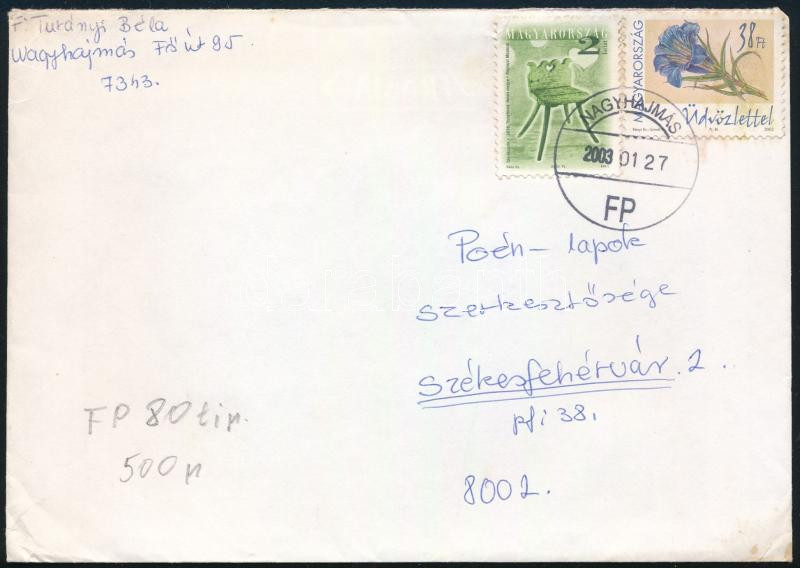 F. Turányi Béla
Nagyhajmás Fő út 95.
7343.
MAGYARORSZÁG
2
MAGYARORSZÁG
38 Ft
Üdvözlettel
NAGYHAJMÁS
2003 01 27
FP
Poén-lapok
szerkesztősége
Székesfehérvár. 2.
pf: 38.
8002.
FP 80 tip.